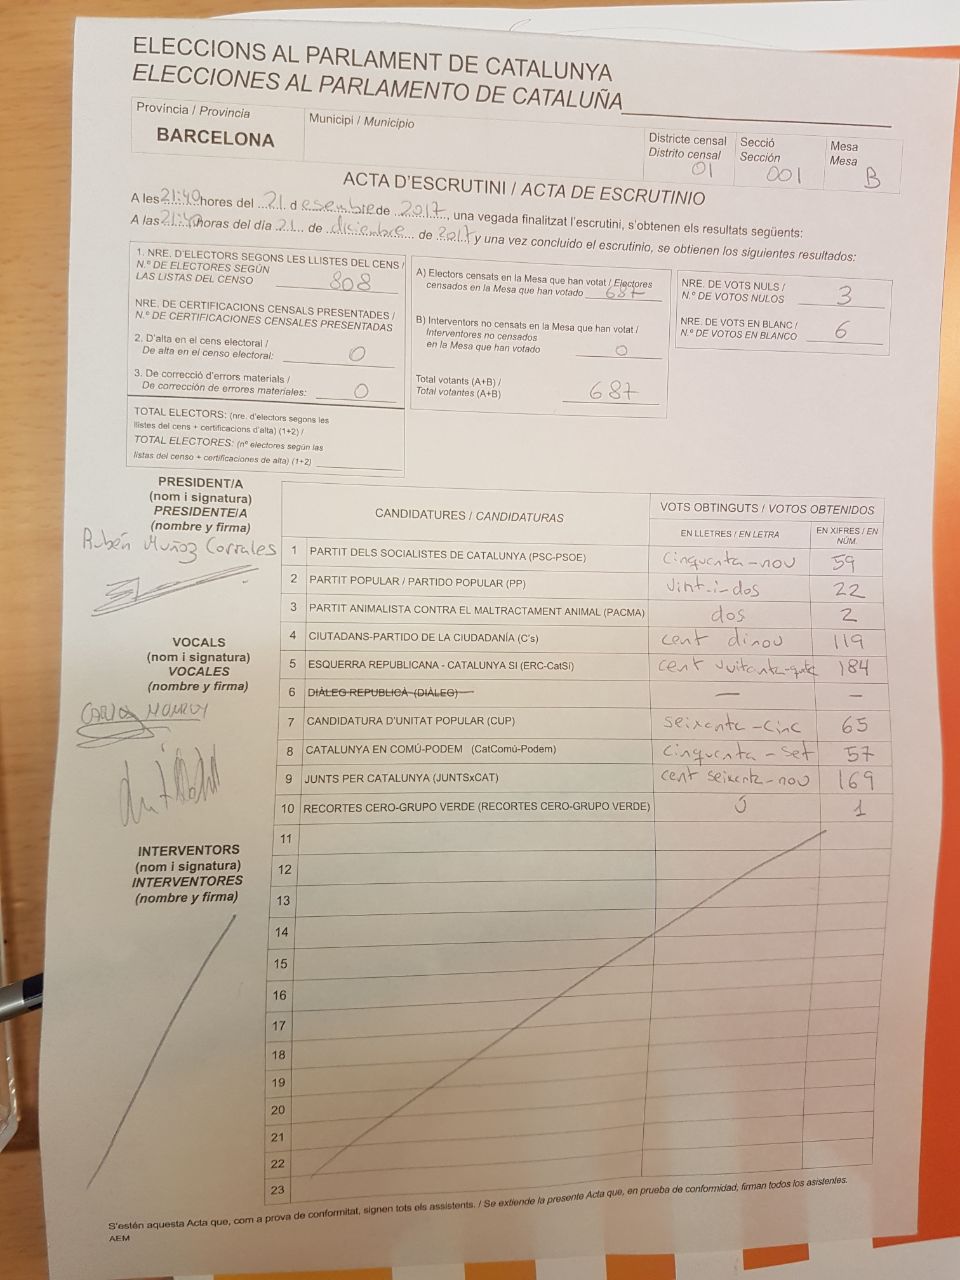 ELECCIONS AL PARLAMENT DE CATALUNYA
ELECCIONES AL PARLAMENTO DE CATALUÑA
Província / Provincia
BARCELONA
Municipi / Municipio
Districte censal
Distrito censal
01
Secció
Sección
001
Mesa
Mesa
B
ACTA D'ESCRUTINI / ACTA DE ESCRUTINIO
A les 21:40 hores del 21 d esembre de 2017, una vegada finalitzat l'escrutini, s'obtenen els resultats següents:
A las 21:40 horas del día 21 de diciembre de 2017 y una vez concluido el escrutinio, se obtienen los siguientes resultados:
1. NRE. D'ELECTORS SEGONS LES LLISTES DEL CENS /
N.º DE ELECTORES SEGÚN
LAS LISTAS DEL CENSO 808
NRE. DE CERTIFICACIONS CENSALS PRESENTADES /
N.º DE CERTIFICACIONES CENSALES PRESENTADAS
2. D'alta en el cens electoral /
De alta en el censo electoral: 0
3. De correcció d'errors materials /
De corrección de errores materiales: 0
TOTAL ELECTORS: (nre. d'electors segons les
llistes del cens + certificacions d'alta) (1+2) /
TOTAL ELECTORES: (nº electores según las
listas del censo + certificaciones de alta) (1+2)
A) Electors censats en la Mesa que han votat / Electores
censados en la Mesa que han votado 687
B) Interventors no censats en la Mesa que han votat /
Interventores no censados
en la Mesa que han votado 0
Total votants (A+B) /
Total votantes (A+B) 687
NRE. DE VOTS NULS /
N.º DE VOTOS NULOS 3
NRE. DE VOTS EN BLANC /
N.º DE VOTOS EN BLANCO 6
PRESIDENT/A
(nom i signatura)
PRESIDENTE/A
(nombre y firma)
Rubén Muñoz Corrales
VOCALS
(nom i signatura)
VOCALES
(nombre y firma)
CARLOS MONROY
INTERVENTORS
(nom i signatura)
INTERVENTORES
(nombre y firma)
CANDIDATURES / CANDIDATURAS
VOTS OBTINGUTS / VOTOS OBTENIDOS
EN LLETRES / EN LETRA
EN XIFRES / EN
NÚM.
1 PARTIT DELS SOCIALISTES DE CATALUNYA (PSC-PSOE) cinquanta-nou 59
2 PARTIT POPULAR / PARTIDO POPULAR (PP) vint-i-dos 22
3 PARTIT ANIMALISTA CONTRA EL MALTRACTAMENT ANIMAL (PACMA) dos 2
4 CIUTADANS-PARTIDO DE LA CIUDADANÍA (C's) cent dinou 119
5 ESQUERRA REPUBLICANA - CATALUNYA SI (ERC-CatSí) cent vuitanta-quatre 184
6 DIÀLEG REPUBLICÀ (DIÀLEG) — —
7 CANDIDATURA D'UNITAT POPULAR (CUP) seixanta-cinc 65
8 CATALUNYA EN COMÚ-PODEM (CatComú-Podem) cinquanta-set 57
9 JUNTS PER CATALUNYA (JUNTSxCAT) cent seixanta-nou 169
10 RECORTES CERO-GRUPO VERDE (RECORTES CERO-GRUPO VERDE) 1
11
12
13
14
15
16
17
18
19
20
21
22
23
S'estén aquesta Acta que, com a prova de conformitat, signen tots els assistents. / Se extiende la presente Acta que, en prueba de conformidad, firman todos los asistentes.
AEM